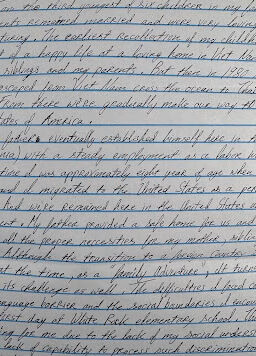 on the third youngest of six children in my fam
ents remained married and were very loving
turing. The earliest recollection of my childh
t of a happy life at a loving home in Viet Nam
siblings and my parents. But then in 1980
escaped from Viet Nam cross the ocean to Thai
From there we're gradually make our way th
tates of America.
father eventually established himself here in
nia) with a steady employment as a labor
time I was approximately eight year of age when
and I migrated to the United States as a per
had were remained here in the United States
ent. My father provided a safe home for us and
all the proper necessities for my mother, siblin
Although the transition to a foreign country
at the time, as a "family adventure", it turns
its challenge as well. The difficulties I faced
language barrier and the social boundaries I encou
first day at White Rock elementary school. The
ing for me due to the lack of my social unders
lack of capability to process such discrimination